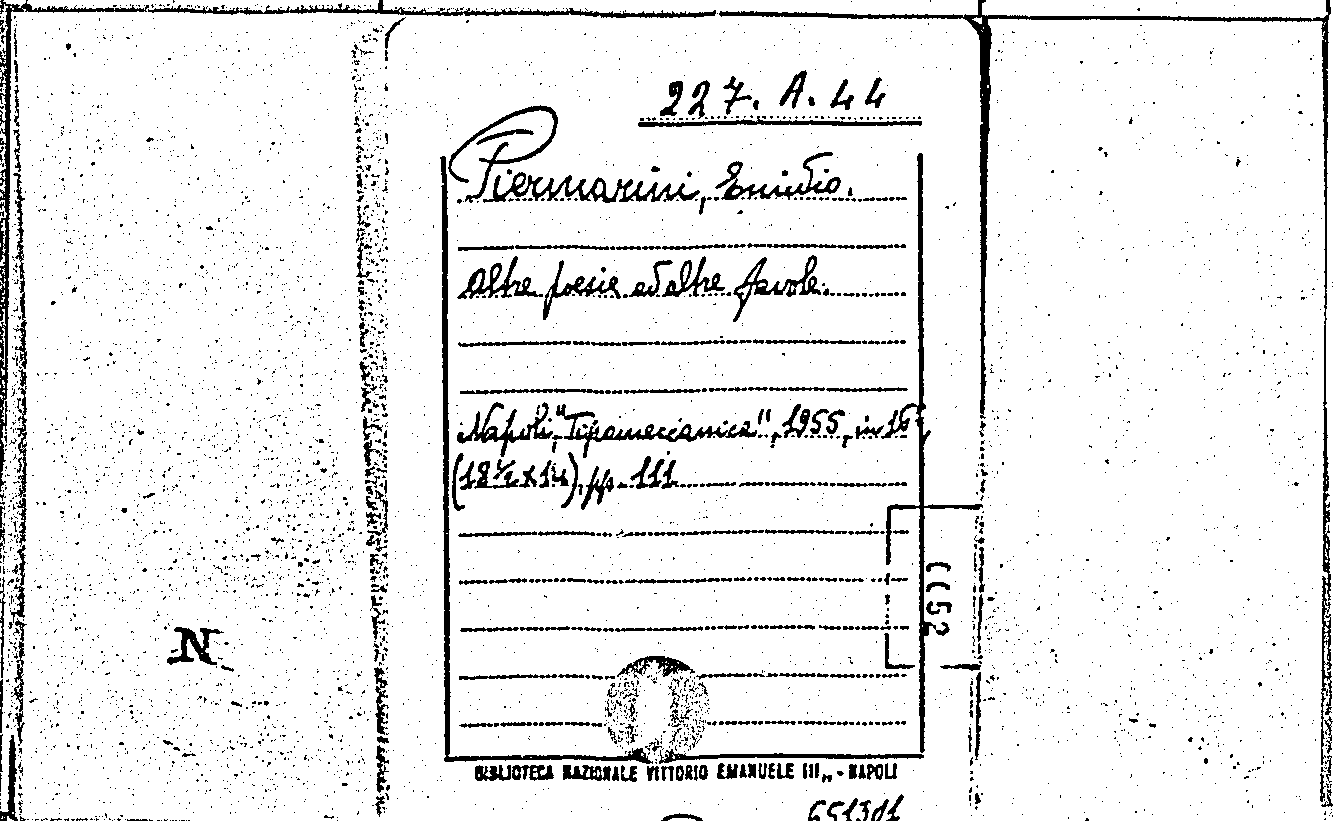 227. A. 44
Piermarini, Emidio.
Altre poesie ed altre favole.
Napoli, "Tipomeccanica", 1955, in 16°,
(18½ x 14), pp. 111
((52
N
BIBLIOTECA NAZIONALE VITTORIO EMANUELE III„ - NAPOLI
651301